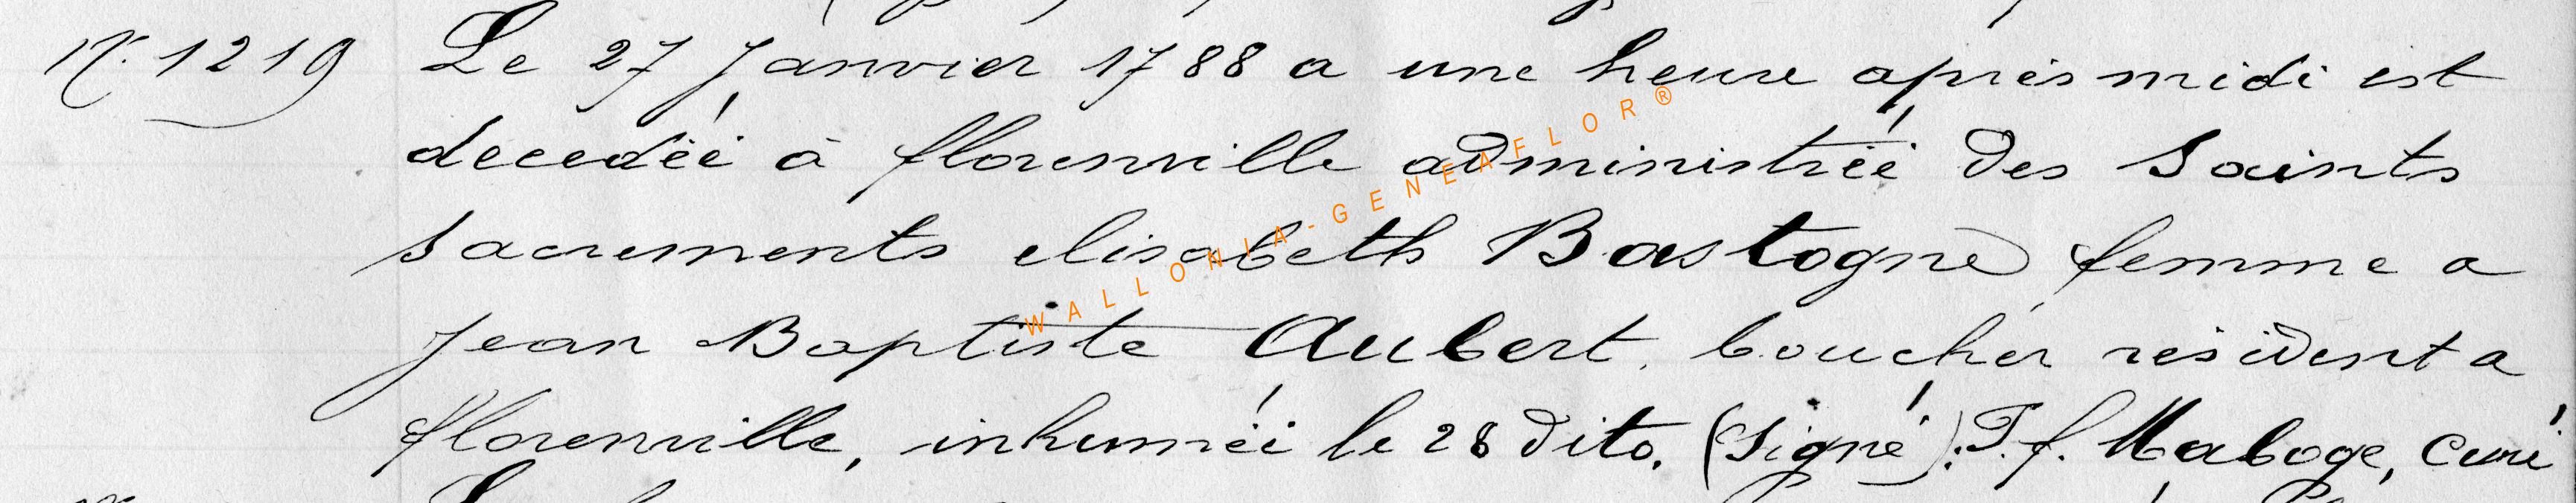 N. 1219 Le 27 Janvier 1788 a une heure après midi est
decedéé à florenville administréé des Saints
Sacrements elisabeth Bastogne femme a
Jean Baptiste Aubert, boucher résident a
florenville, inhuméé le 28 dito. (Signé): T. f. Maboge, Curé
WALLONIA-GENEAFLOR®